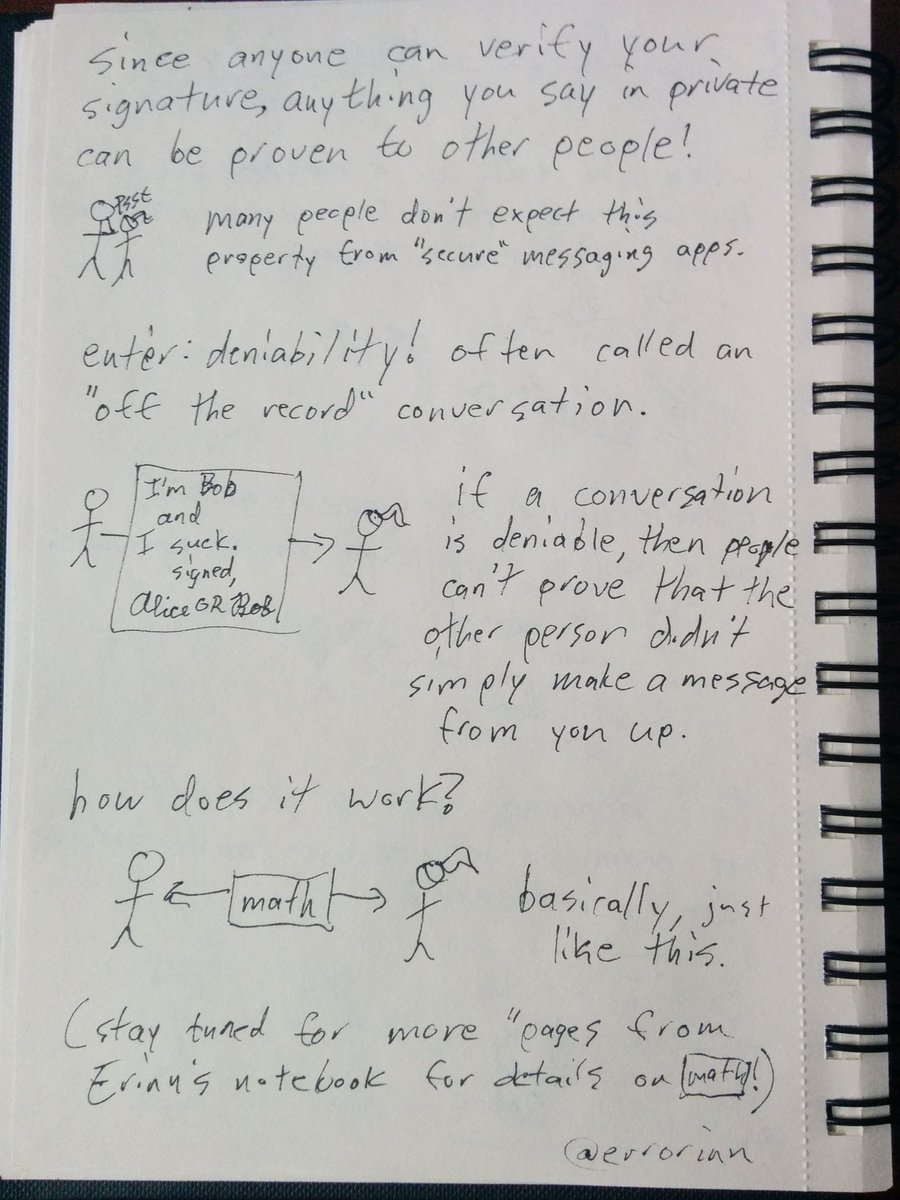 since anyone can verify your
signature, anything you say in private
can be proven to other people!
psst
psst
many people don't expect this
property from "secure" messaging apps.
enter: deniability! often called an
"off the record" conversation.
I'm Bob
and
I suck.
signed,
Alice OR Bob
if a conversation
is deniable, then people
can't prove that the
other person didn't
simply make a message
from you up.
how does it work?
math
basically, just
like this.
(stay tuned for more "pages from
Erinn's notebook for details on math!)
@errorinn